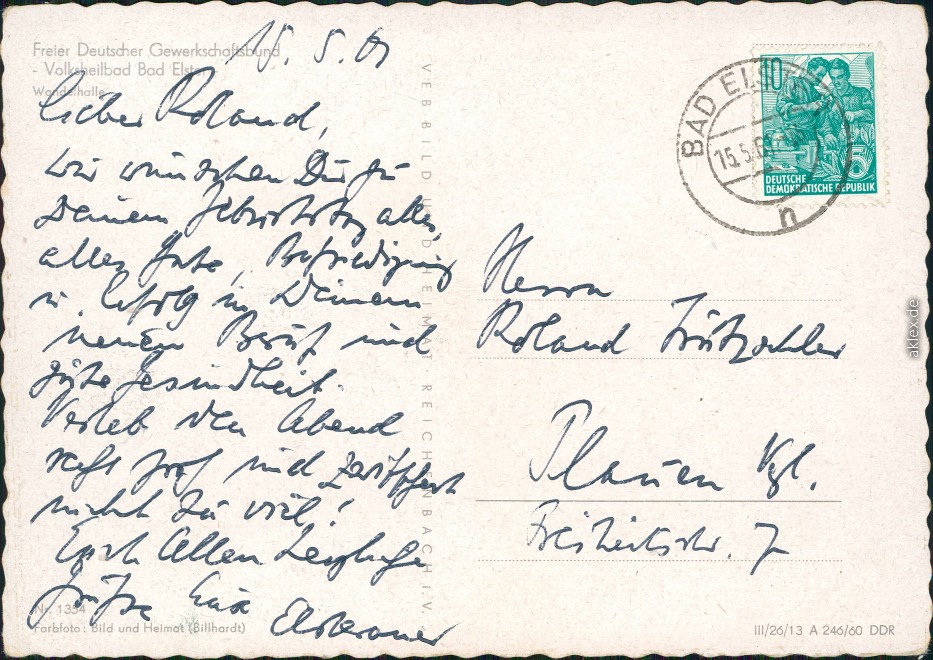 Freier Deutscher Gewerkschaftsbund
- Volksheilbad Bad Elster
Wandelhalle
15. 5. 61
Lieber Roland,
wir wünschen Dir zu
Deinem Geburtstag alles,
alles Gute, Befriedigung
u. Erfolg in Deinem
neuen Beruf und
gute Gesundheit.
Verleb den Abend
recht froh und
nicht zu viel!
Euch Allen herzliche
Grüße Eure
Elsteraner
Nr. 1334
Farbfoto: Bild und Heimat (Billhardt)
VEB BILD UND HEIMAT REICHENBACH I.V.
BAD ELSTER
15.5.61
n
10
5
DEUTSCHE
DEMOKRATISCHE REPUBLIK
Herrn
Roland
Plauen Vgl.
Freiheitsstr. 7
III/26/13 A 246/60 DDR
aklex.de